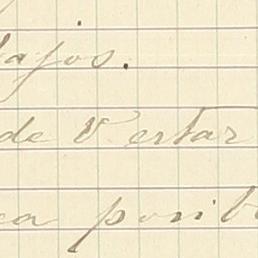 ajos.
de V estar
ea posib